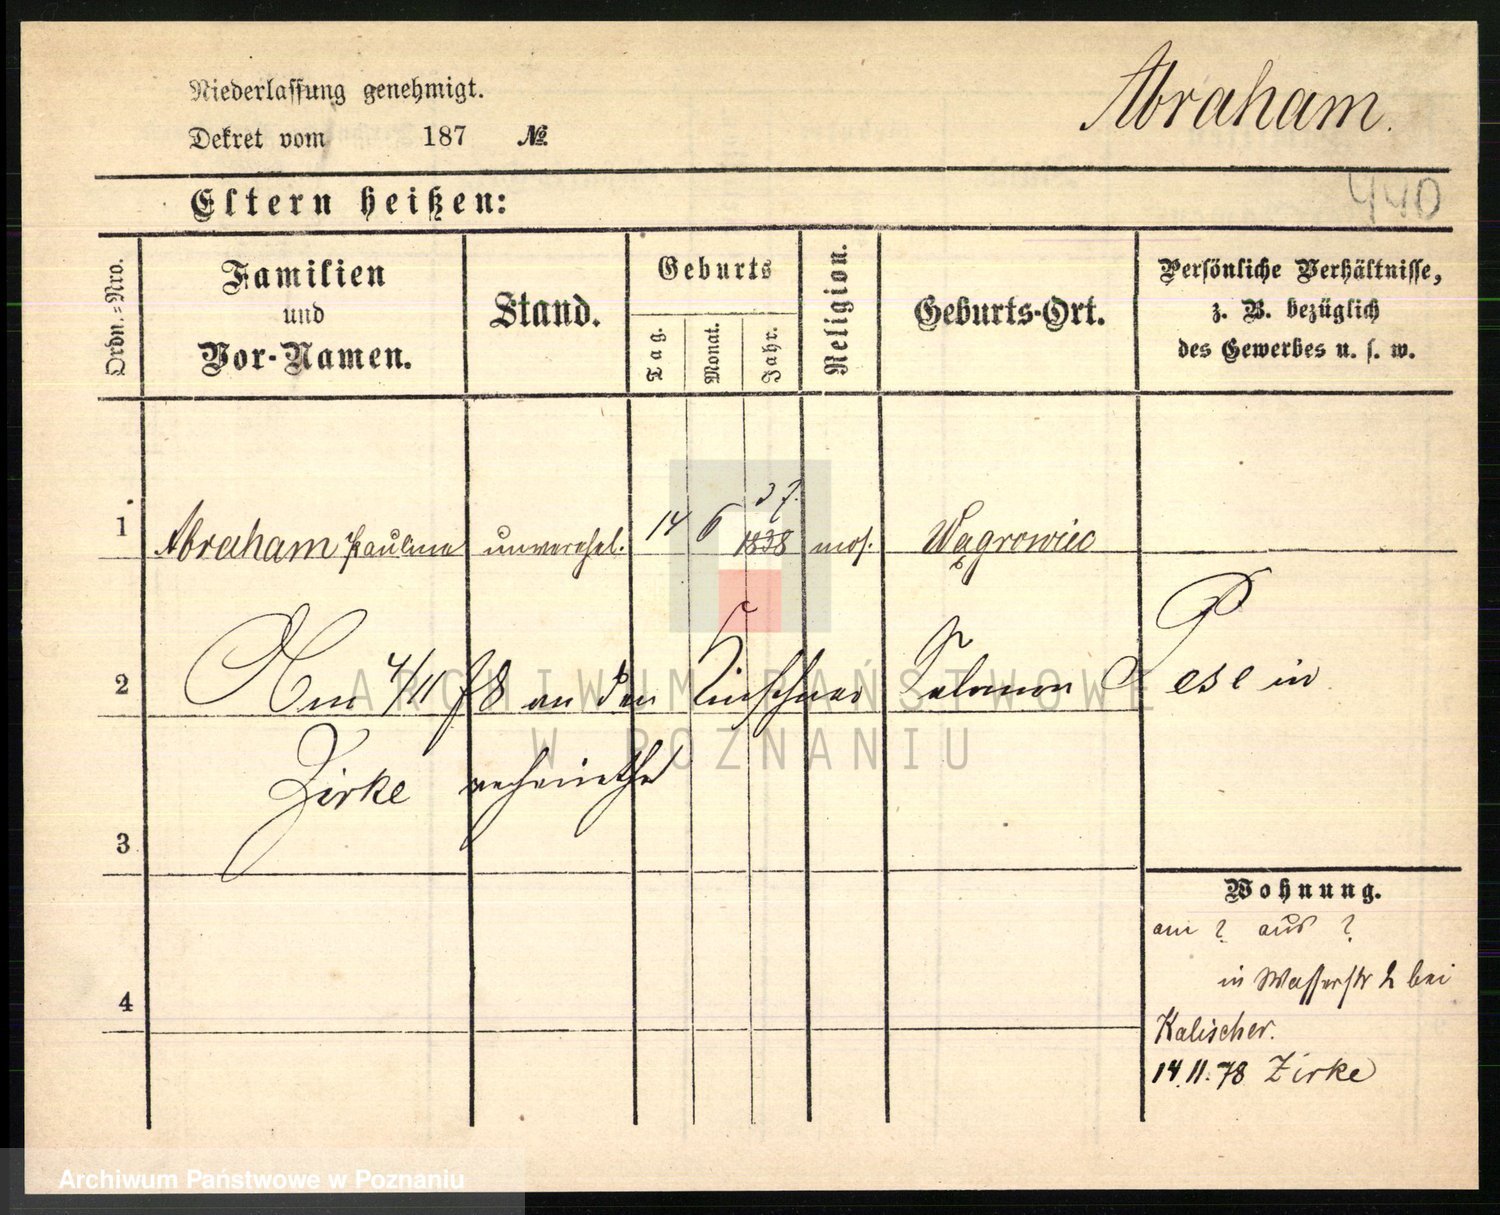 Niederlassung genehmigt.
Abraham.
Dekret vom 187 №
Eltern heißen:
440
Ordn.-Nro.
Familien
und
Vor-Namen.
Stand.
Geburts
Tag.
Monat.
Jahr.
Religion.
Geburts-Ort.
Persönliche Verhältnisse,
z. B. bezüglich
des Gewerbes u. s. w.
37.
1 Abraham Paulina unverehel. 14 6 1838 mos. Wągrowiec
2 Am 4/11 78 an den Kürschner Salomon Pese in
Zirke verheirathet
3
Wohnung.
am ? aus ?
in Wasserstr 2 bei
4
Kalischer.
14.11.78 Zirke
ARCHIWUM PAŃSTWOWE
W POZNANIU
Archiwum Państwowe w Poznaniu